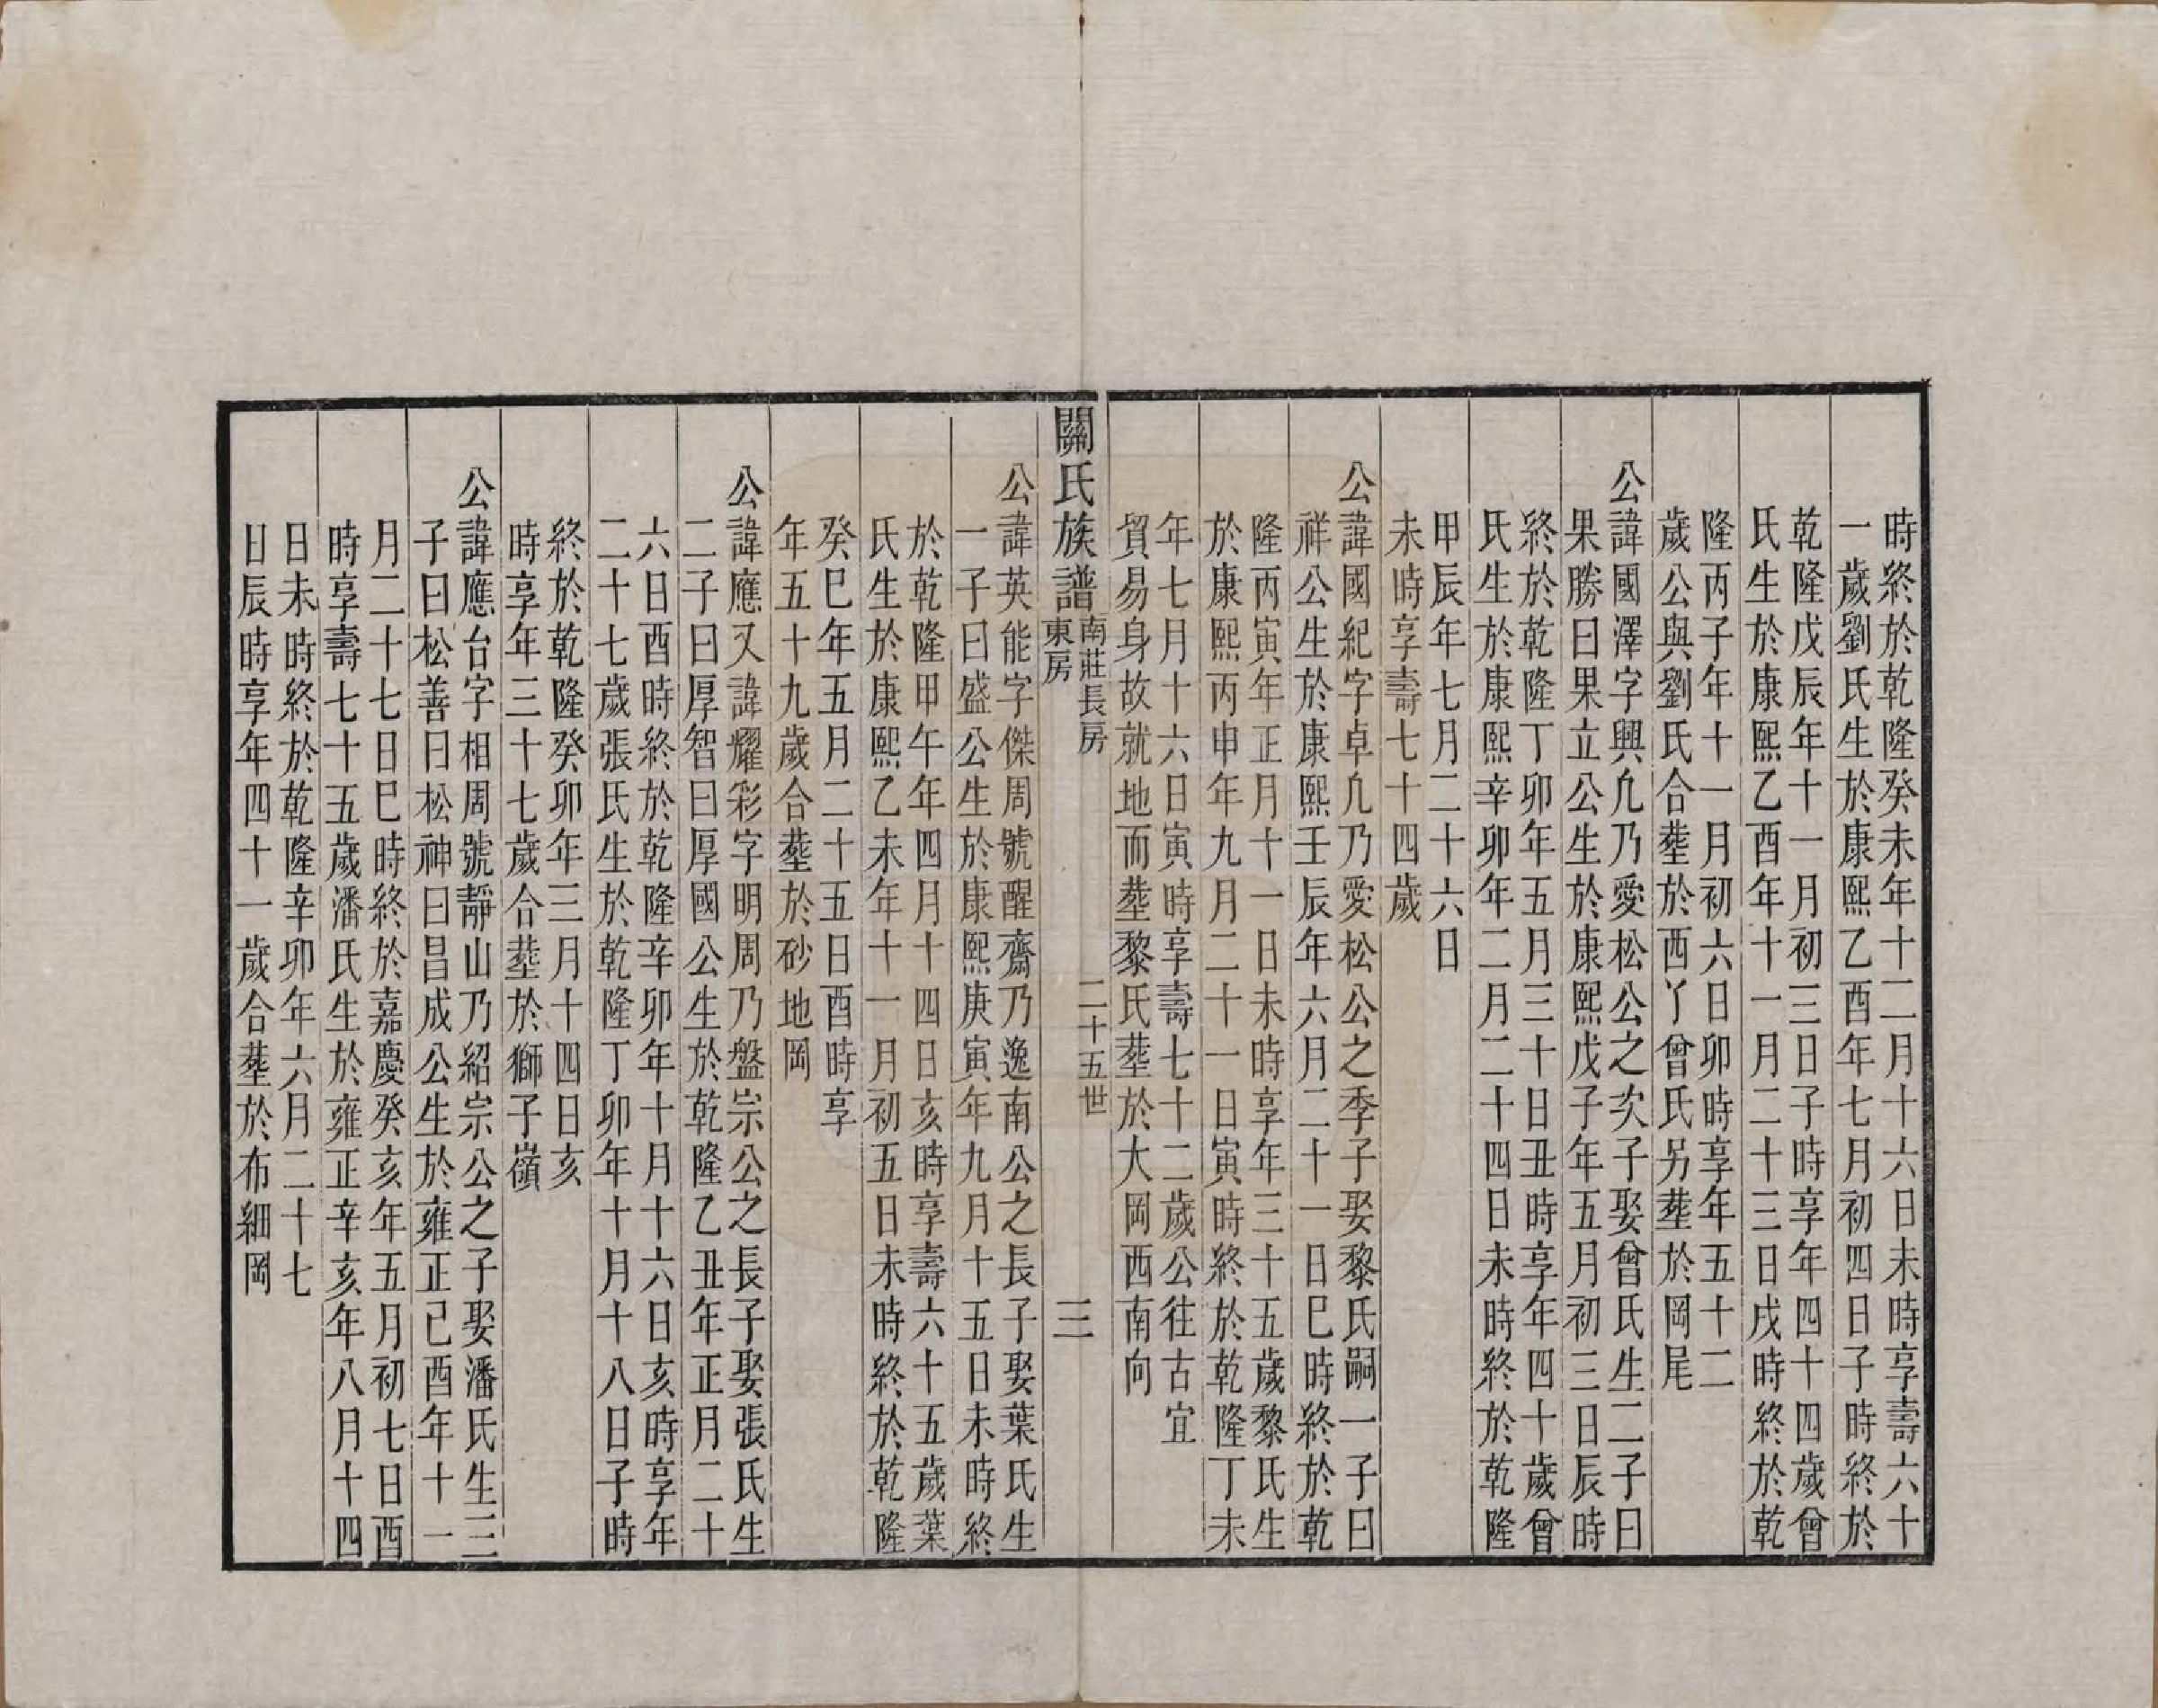 時終於乾隆癸未年十二月十六日未時享壽六十
一歲劉氏生於康熙乙酉年七月初四日子時終於
乾隆戊辰年十一月初三日子時享年四十四歲曾
氏生於康熙乙酉年十一月二十三日戌時終於乾
隆丙子年十一月初六日卯時享年五十二
歲公與劉氏合塟於西丫曾氏另塟於岡尾
公諱國澤字興凣乃愛松公之次子娶曾氏生二子曰
果勝曰果立公生於康熙戊子年五月初三日辰時
終於乾隆丁卯年五月三十日丑時享年四十歲曾
氏生於康熙辛卯年二月二十四日未時終於乾隆
甲辰年七月二十六日
未時享壽七十四歲
公諱國紀字卓凣乃愛松公之季子娶黎氏嗣一子曰
祥公生於康熙壬辰年六月二十一日巳時終於乾
隆丙寅年正月十一日未時享年三十五歲黎氏生
於康熙丙申年九月二十一日寅時終於乾隆丁未
年七月十六日寅時享壽七十二歲公往古宜
貿易身故就地而塟黎氏塟於大岡西南向
關氏族譜
南莊長房
東房
二十五世
三
公諱英能字傑周號醒齋乃逸南公之長子娶葉氏生
一子曰盛公生於康熙庚寅年九月十五日未時終
於乾隆甲午年四月十四日亥時享壽六十五歲葉
氏生於康熙乙未年十一月初五日未時終於乾隆
癸巳年五月二十五日酉時享
年五十九歲合塟於砂地岡
公諱應又諱耀彩字明周乃盤宗公之長子娶張氏生
二子曰厚智曰厚國公生於乾隆乙丑年正月二十
六日酉時終於乾隆辛卯年十月十六日亥時享年
二十七歲張氏生於乾隆丁卯年十月十八日子時
終於乾隆癸卯年三月十四日亥
時享年三十七歲合塟於獅子嶺
公諱應台字相周號靜山乃紹宗公之子娶潘氏生三
子曰松善曰松神曰昌成公生於雍正己酉年十一
月二十七日巳時終於嘉慶癸亥年五月初七日酉
時享壽七十五歲潘氏生於雍正辛亥年八月十四
日未時終於乾隆辛卯年六月二十七
日辰時享年四十一歲合塟於布細岡